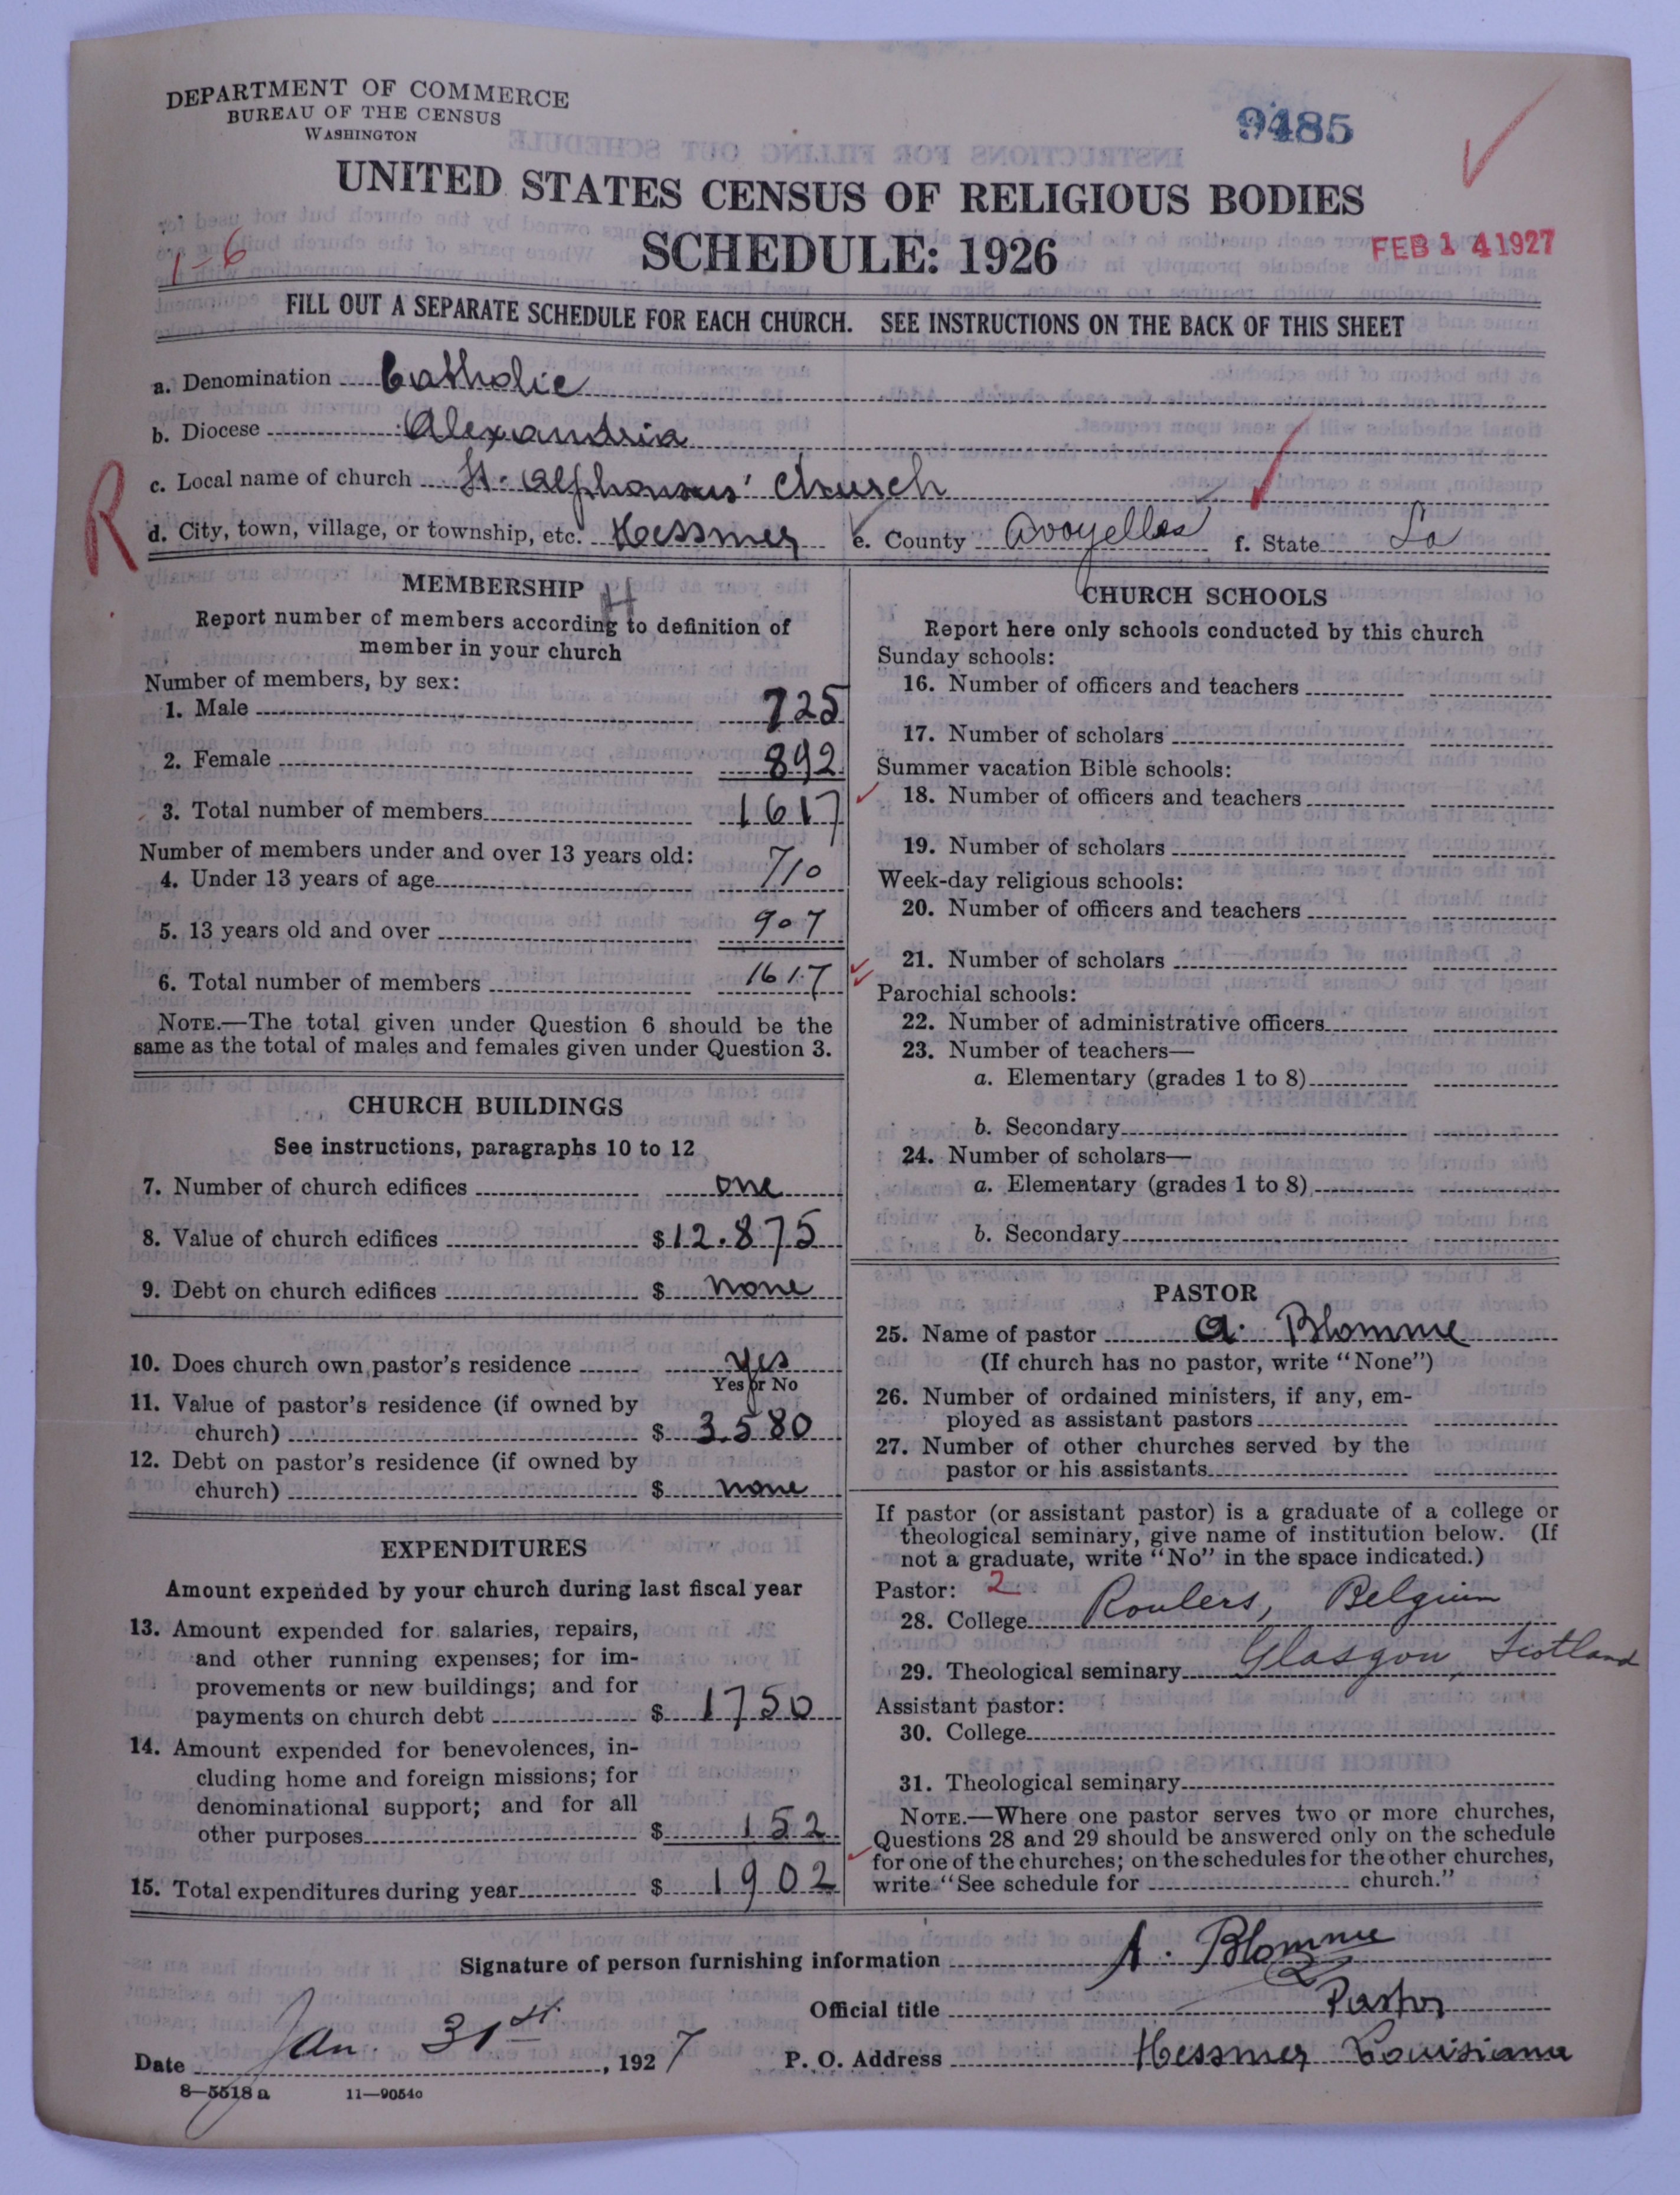 DEPARTMENT OF COMMERCE
BUREAU OF THE CENSUS
WASHINGTON
9485
UNITED STATES CENSUS OF RELIGIOUS BODIES
SCHEDULE: 1926
FEB 14 1927
1-6
FILL OUT A SEPARATE SCHEDULE FOR EACH CHURCH. SEE INSTRUCTIONS ON THE BACK OF THIS SHEET
a. Denomination Catholic
b. Diocese Alexandria
c. Local name of church St. Alphonsus' Church
R
d. City, town, village, or township, etc. Hessmer e. County Avoyelles f. State La
MEMBERSHIP
Report number of members according to definition of
member in your church
Number of members, by sex:
1. Male 725
2. Female 892
3. Total number of members 1617
Number of members under and over 13 years old:
4. Under 13 years of age 710
5. 13 years old and over 907
6. Total number of members 1617
NOTE.—The total given under Question 6 should be the
same as the total of males and females given under Question 3.
CHURCH BUILDINGS
See instructions, paragraphs 10 to 12
7. Number of church edifices one
8. Value of church edifices $12.875
9. Debt on church edifices $ none
10. Does church own pastor's residence yes
Yes or No
11. Value of pastor's residence (if owned by
church) $ 3.580
12. Debt on pastor's residence (if owned by
church) $ none
EXPENDITURES
Amount expended by your church during last fiscal year
13. Amount expended for salaries, repairs,
and other running expenses; for im-
provements or new buildings; and for
payments on church debt $ 1750
14. Amount expended for benevolences, in-
cluding home and foreign missions; for
denominational support; and for all
other purposes $ 152
15. Total expenditures during year $ 1902
CHURCH SCHOOLS
Report here only schools conducted by this church
Sunday schools:
16. Number of officers and teachers
17. Number of scholars
Summer vacation Bible schools:
18. Number of officers and teachers
19. Number of scholars
Week-day religious schools:
20. Number of officers and teachers
21. Number of scholars
Parochial schools:
22. Number of administrative officers
23. Number of teachers—
a. Elementary (grades 1 to 8)
b. Secondary
24. Number of scholars—
a. Elementary (grades 1 to 8)
b. Secondary
PASTOR
25. Name of pastor A. Blomme
(If church has no pastor, write "None")
26. Number of ordained ministers, if any, em-
ployed as assistant pastors
27. Number of other churches served by the
pastor or his assistants
If pastor (or assistant pastor) is a graduate of a college or
theological seminary, give name of institution below. (If
not a graduate, write "No" in the space indicated.)
Pastor: 2
28. College Roulers, Belgium
29. Theological seminary Glasgow, Scotland
Assistant pastor:
30. College
31. Theological seminary
NOTE.—Where one pastor serves two or more churches,
Questions 28 and 29 should be answered only on the schedule
for one of the churches; on the schedules for the other churches,
write "See schedule for church."
Signature of person furnishing information A. Blomme
Official title Pastor
Date Jan. 31st, 1927 P. O. Address Hessmer Louisiana
8—5518 a 11—9054o